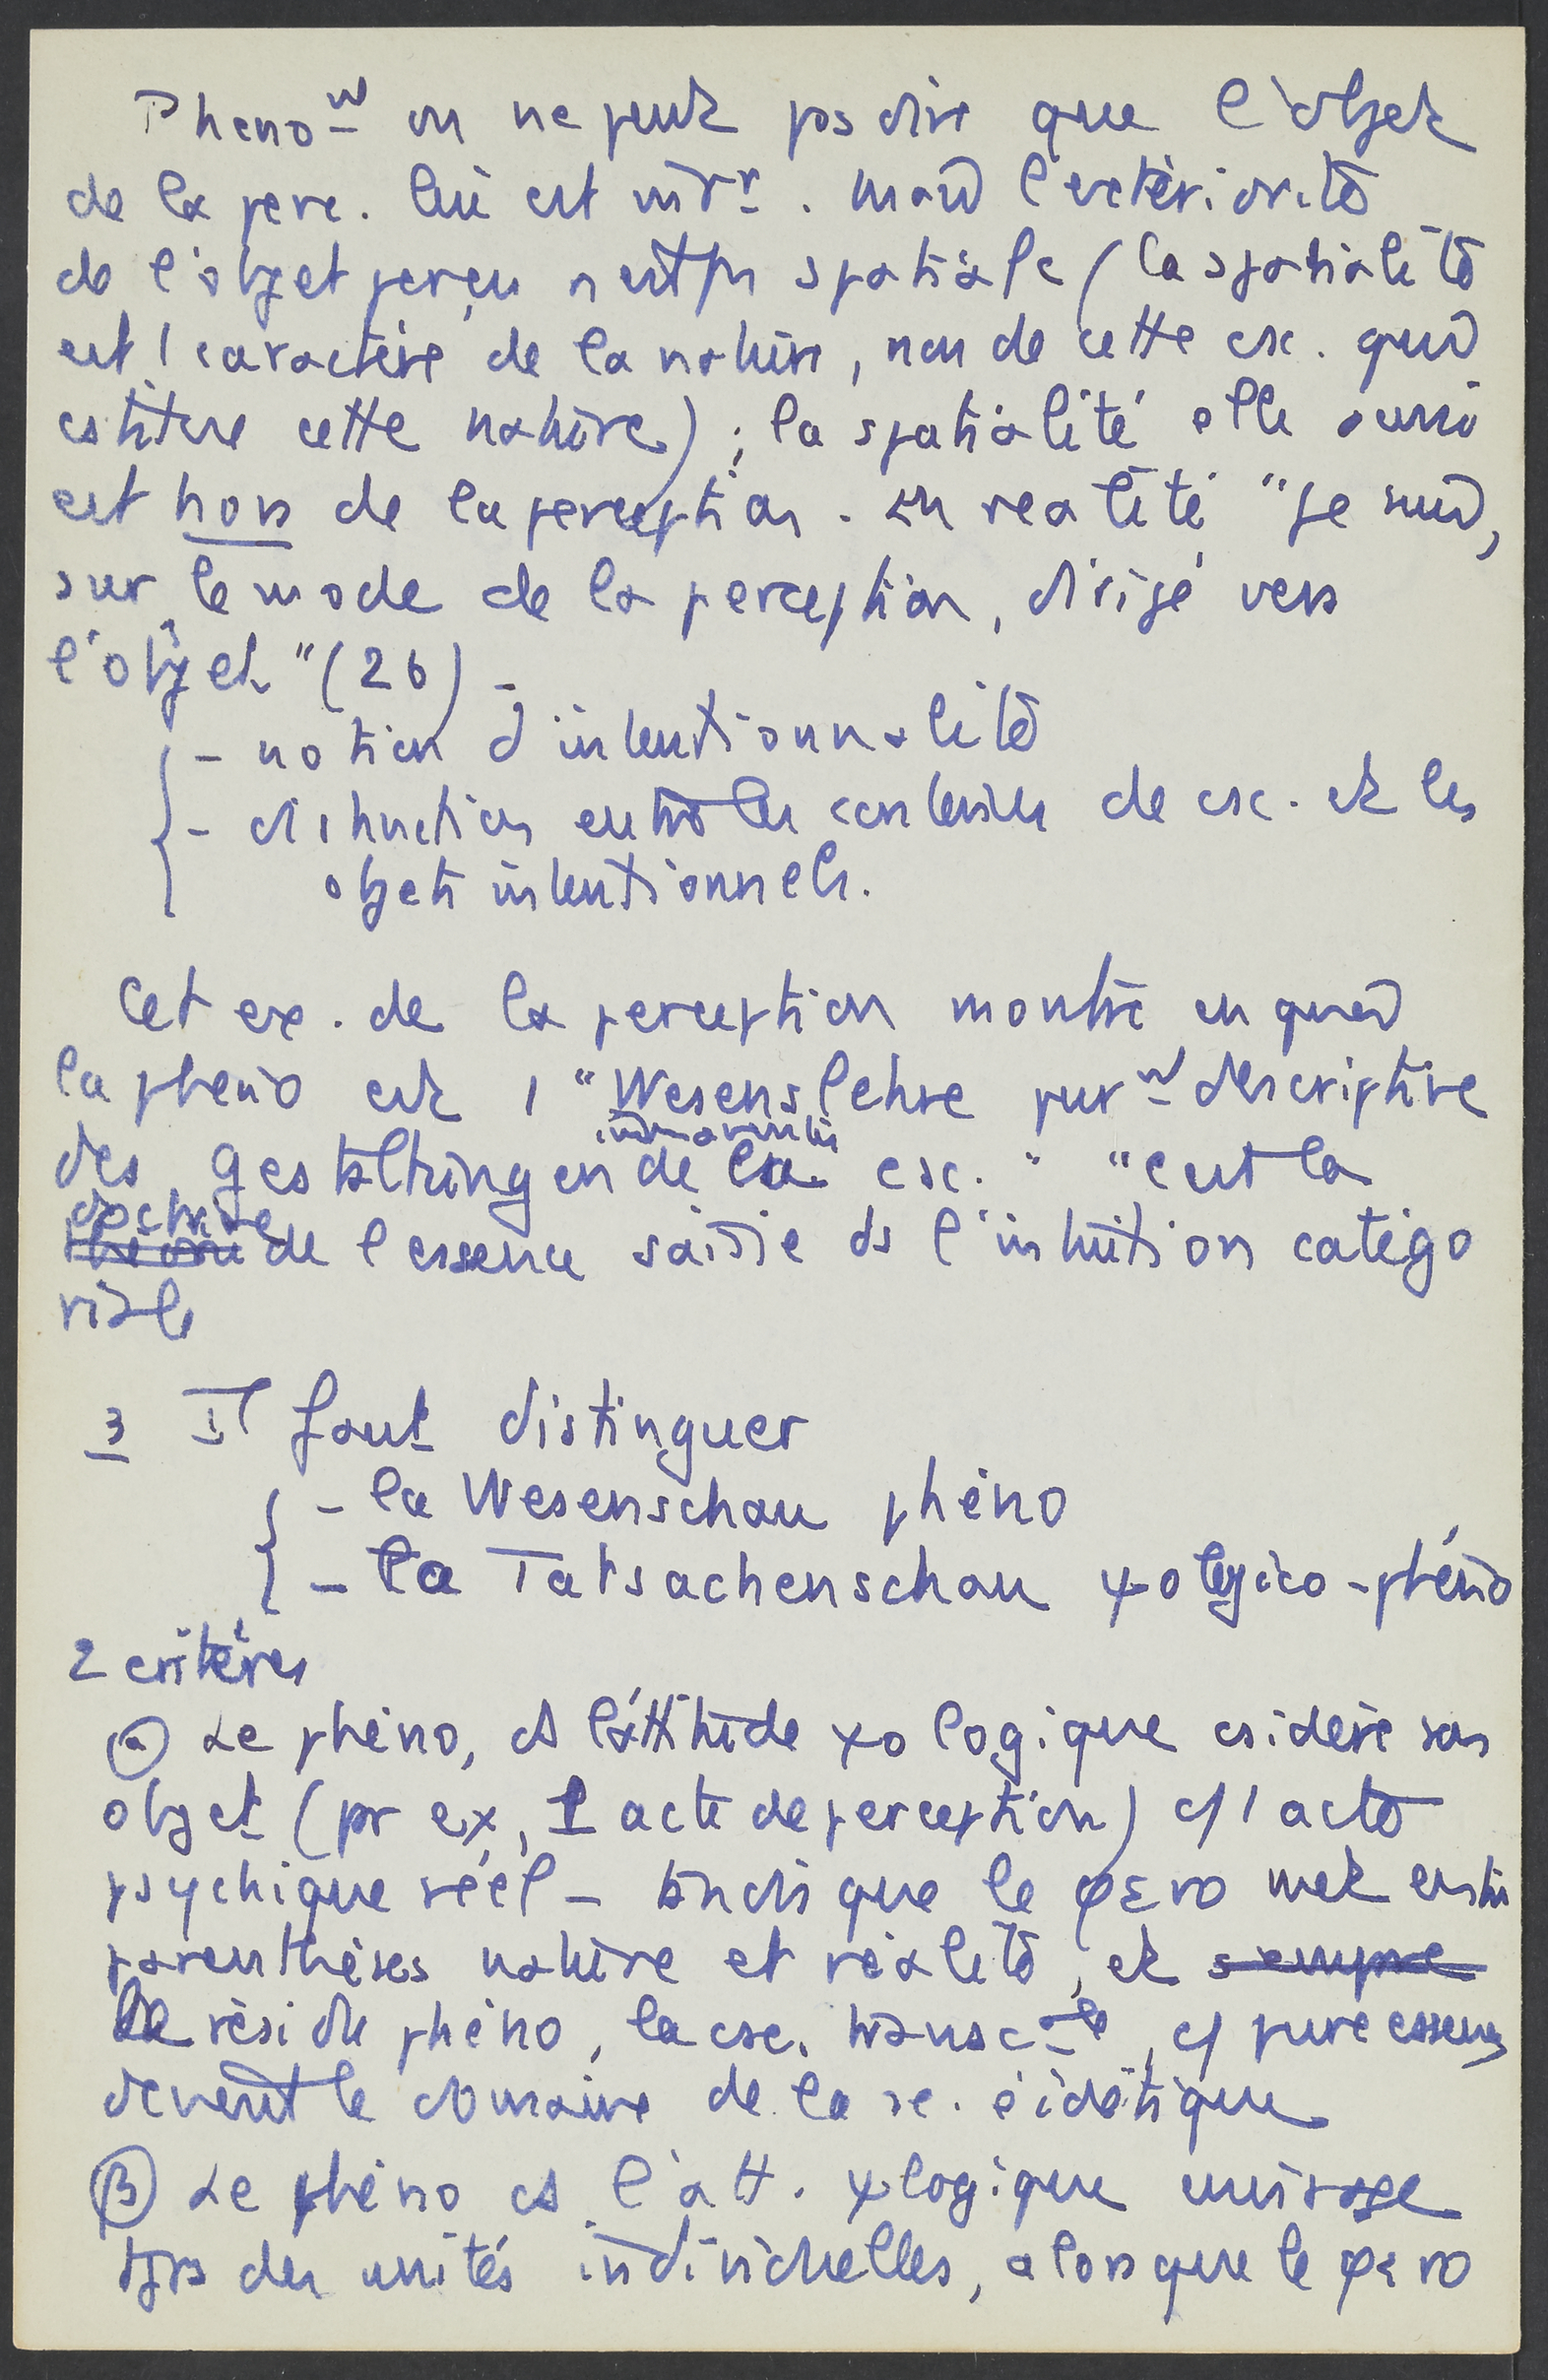 Pheno^nt on ne peut pas dire que l'objet
de la perc. lui est intér. Mais l'extériorité
de l'objet perçu n'est pas spatiale (la spatialité
est 1 caractère de la nature, non de cette csc. qui
cstitue cette nature) ; la spatialité elle aussi
est hors de la perception. En réalité "je suis,
sur le mode de la perception, dirigé vers
l'objet" (26) -
- notion d'intentionnalité
- distinction entre les contenus de csc. et les
objets intentionnels.
Cet ex. de la perception montre en quoi
la phéno est 1 "Wesenslehre pur^nt descriptive
immanentes
des gestaltungen de la csc." "c'est la
doctrine
théorie de l'essence saisie ds l'intuition catégo
riale
3 Il faut distinguer
- la Wesenschau phéno
- la Tatsachenschau ψologico-phéno
2 critères
α Le phéno, ds l'attitude ψologique csidère son
objet (pr ex, 1 acte de perception) c/ 1 acte
psychique réel - tandis que le φενο met entre
parenthèses nature et réalité, et
le résidu phéno, la csc. transc^ale, c/ pure essence
devient le domaine de la sc. éidétique
β Le phéno ds l'att. ψlogique envisage
tjrs des unités individuelles, alors que le φενο